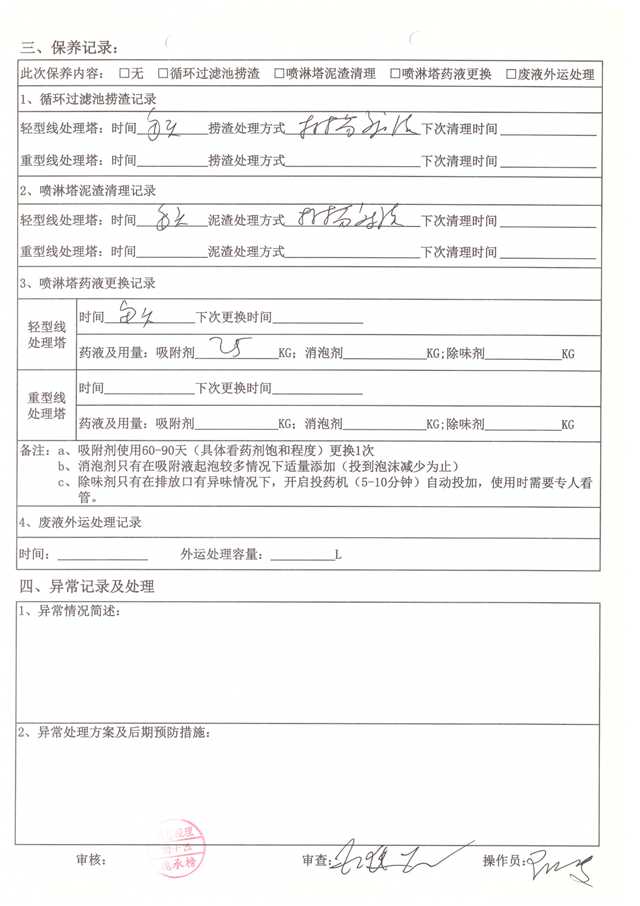 三、保养记录：
此次保养内容： □无 □循环过滤池捞渣 □喷淋塔泥渣清理 □喷淋塔药液更换 □废液外运处理
1、循环过滤池捞渣记录
轻型线处理塔：时间 每天 捞渣处理方式 下次清理时间
重型线处理塔：时间 捞渣处理方式 下次清理时间
2、喷淋塔泥渣清理记录
轻型线处理塔：时间 每天 泥渣处理方式 下次清理时间
重型线处理塔：时间 泥渣处理方式 下次清理时间
3、喷淋塔药液更换记录
轻型线处理塔
时间 每天 下次更换时间
药液及用量：吸附剂 25 KG；消泡剂 KG;除味剂 KG
重型线处理塔
时间 下次更换时间
药液及用量：吸附剂 KG；消泡剂 KG;除味剂 KG
备注：a、吸附剂使用60-90天（具体看药剂饱和程度）更换1次
b、消泡剂只有在吸附液起泡较多情况下适量添加（投到泡沫减少为止）
c、除味剂只有在排放口有异味情况下，开启投药机（5-10分钟）自动投加，使用时需要专人看管。
4、废液外运处理记录
时间： 外运处理容量： L
四、异常记录及处理
1、异常情况简述：
2、异常处理方案及后期预防措施：
审核： 审查： 操作员：